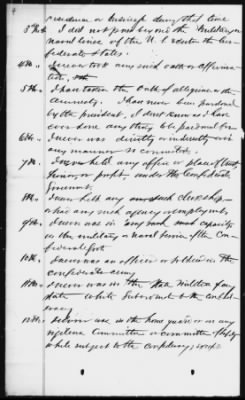 residence or business during that time
3rd I did not pass beyond the Military or
naval lines of the U.S. & enter the Con-
federate States.
4th. I never took any such oath or affirma-
tion.
5th. I have taken the Oath of allegiance or the
amnesty. I have never been pardoned
by the president, I dont know as I have
ever done any thing to be pardoned for
6th. I never was directly or indirectly in
any manner so connected.
7th. I never held any office or place of trust,
honor, or profit under the Confederate
Government.
8th. I never held any such clerkship
or had any such agency or employment.
9th. I never was in any such capacity
in the military or naval service of the Con-
federate Govt
10th. I never was an officer or soldier in the
confederate army
11th. I never was in the State Militia of any
state while Subservient to the confed-
eracy
12th. I never was in the home guard or on any
vigilence Committee or committee of safety
while subject to the conspiracy,